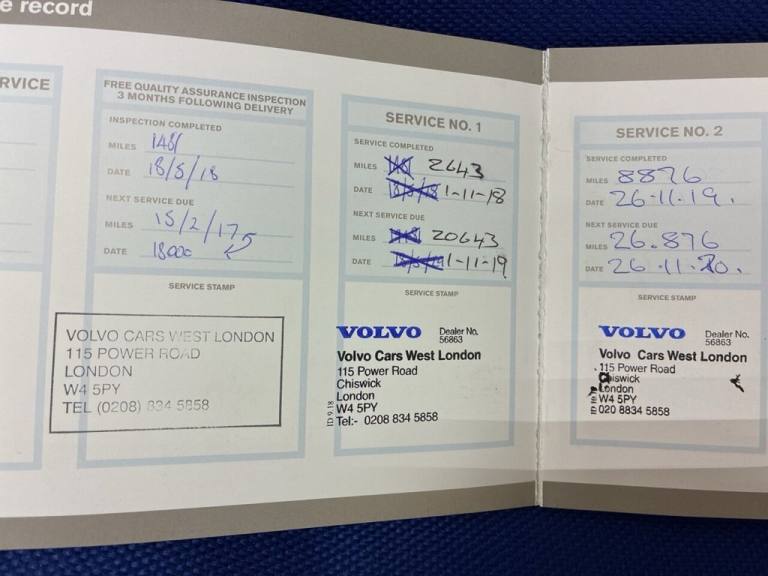 e record
RVICE
FREE QUALITY ASSURANCE INSPECTION
3 MONTHS FOLLOWING DELIVERY
INSPECTION COMPLETED
MILES 1481
DATE 18/5/18
NEXT SERVICE DUE
MILES 15/2/175
DATE 18000
SERVICE STAMP
VOLVO CARS WEST LONDON
115 POWER ROAD
LONDON
W4 5PY
TEL (0208) 834 5858
SERVICE NO. 1
SERVICE COMPLETED
MILES 2643
DATE 1-11-18
NEXT SERVICE DUE
MILES 20643
DATE 1-11-19
SERVICE STAMP
VOLVO Dealer No.
56863
Volvo Cars West London
115 Power Road
Chiswick
London
W4 5PY
Tel:- 0208 834 5858
SERVICE NO. 2
SERVICE COMPLETED
MILES 8876
DATE 26.11.19.
NEXT SERVICE DUE
MILES 26.876
DATE 26.11.20.
SERVICE STAMP
VOLVO Dealer No.
56863
Volvo Cars West London
115 Power Road
Chiswick
London
W4 5PY
020 8834 5858